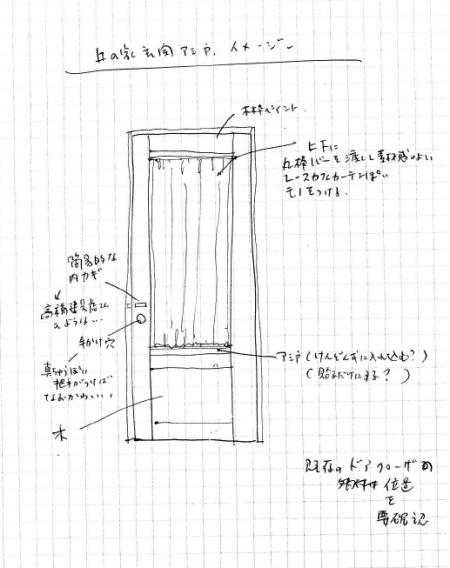 丘の家 玄関アミ戸. イメージ
木枠ペイント.
上下に
丸棒バーを渡して素材感のよい
レースカフェカーテンぽい
モノをつける.
簡易的な
内カギ
のような…
手がけ穴
真ちゅうぽい
把手がつけば
なおかわいい
木
アミ戸（けんどん式に入れ込む？）
（貼るだけにする？）
既存のドアクローザーの
位置
を
要確認